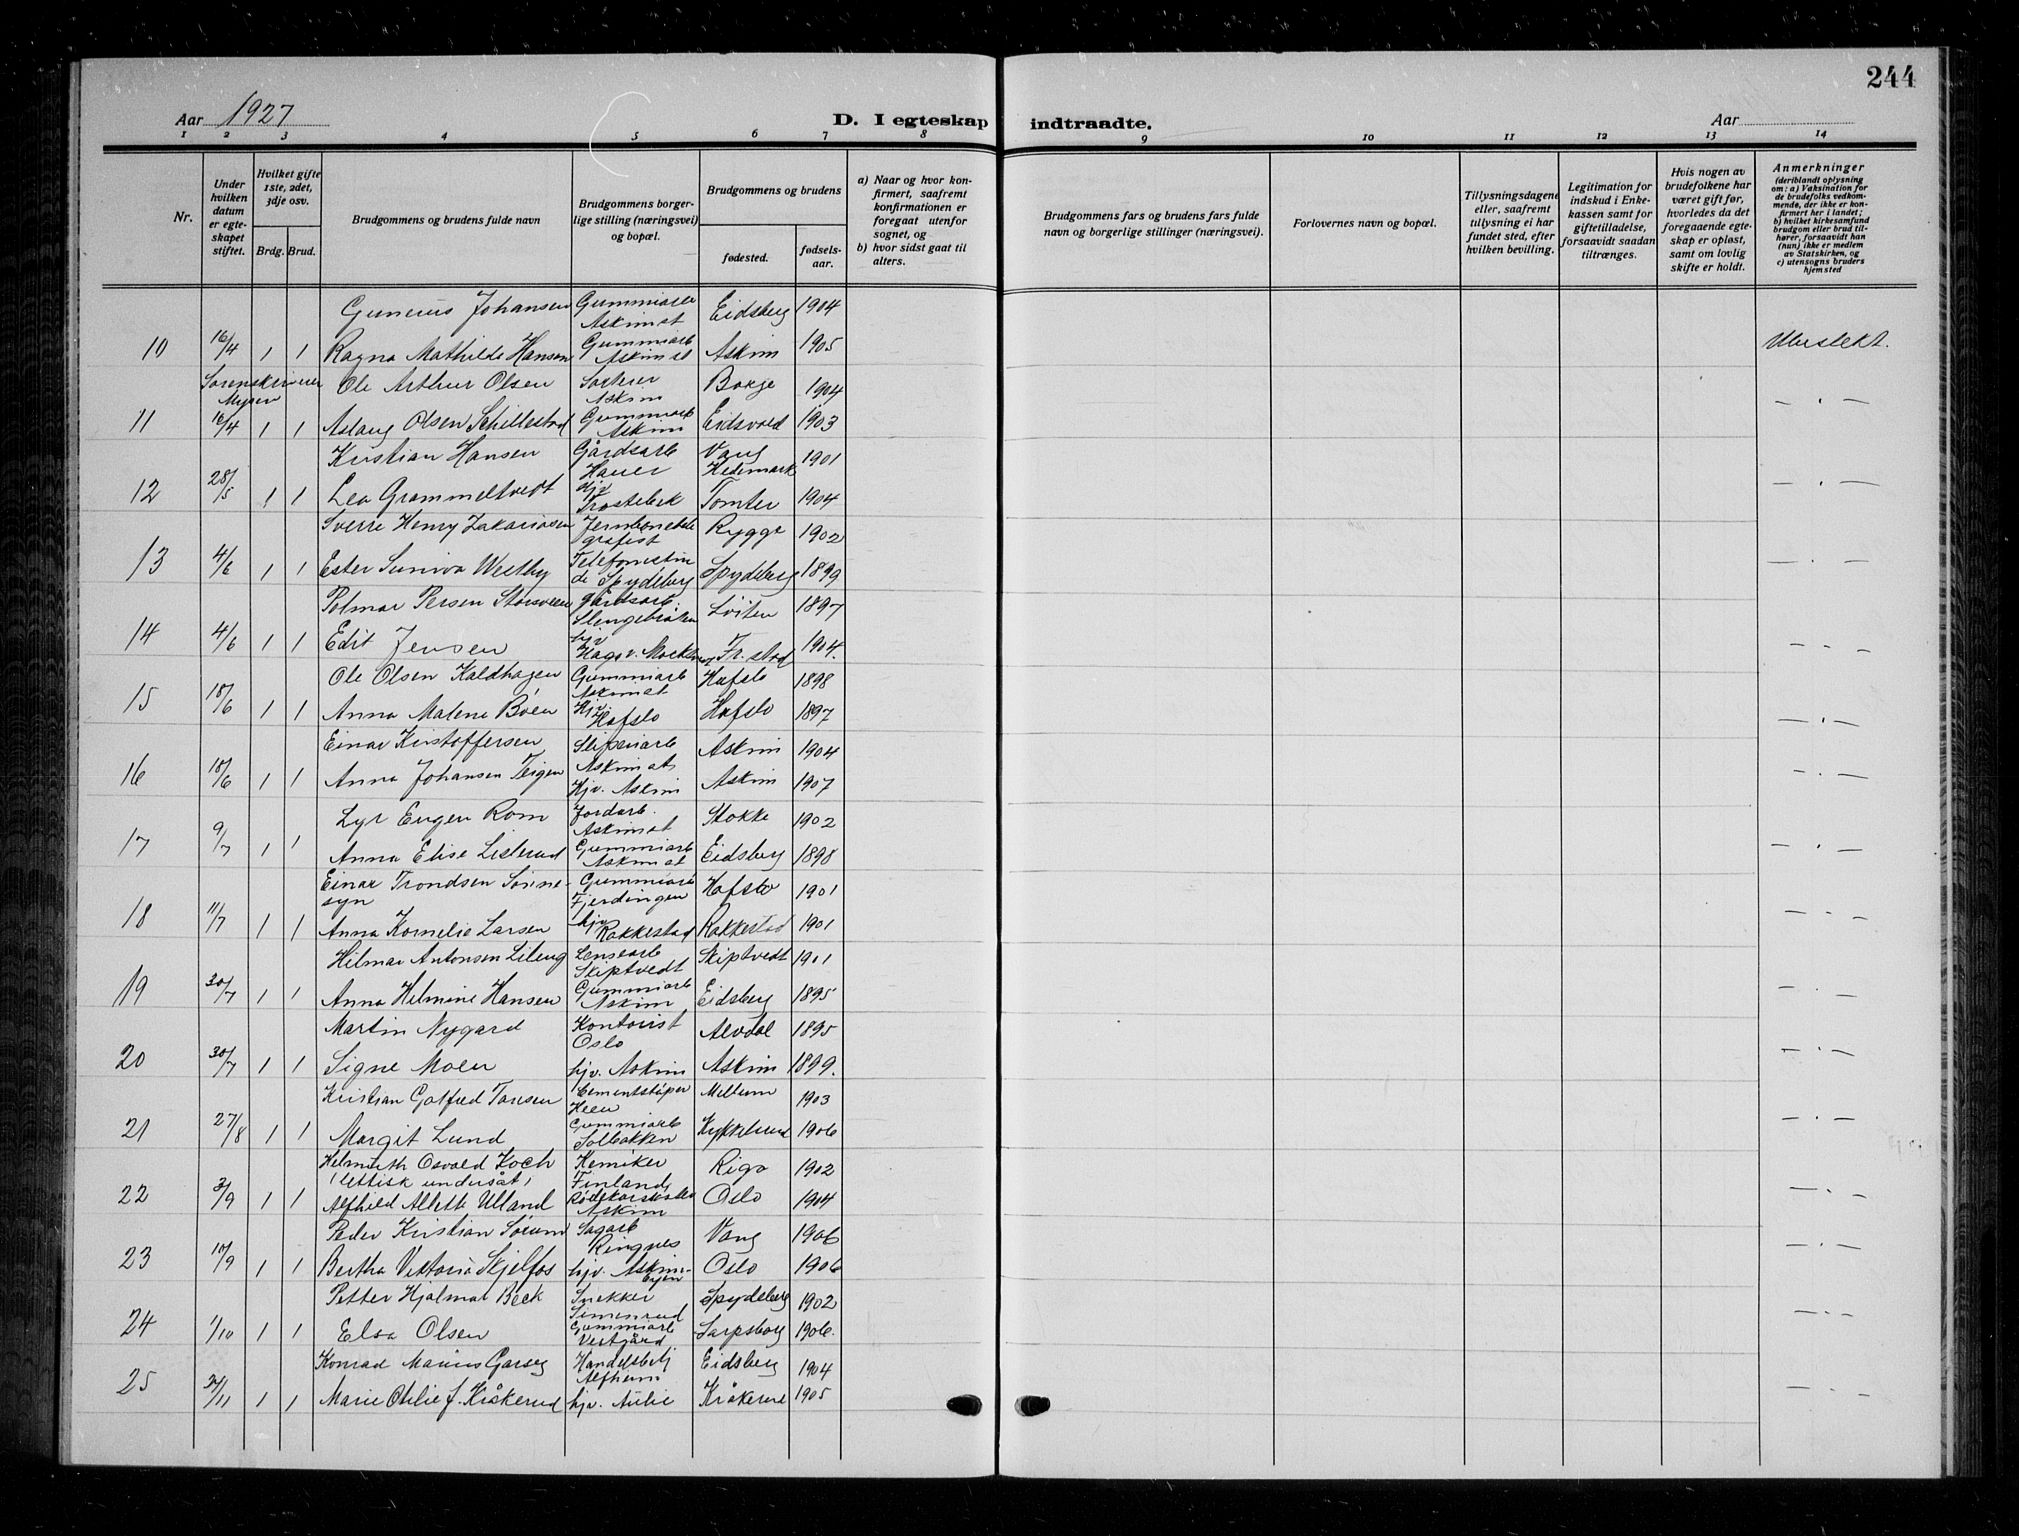 244
Aar 1927
D. I egteskap indtraadte.
Aar
1 2 3 4 5 6 7 8 9 10 11 12 13 14
Nr.
Under hvilken datum er egte-skapet stiftet.
Hvilket gifte 1ste, 2det, 3dje osv.
Brdg. Brud.
Brudgommens og brudens fulde navn
Brudgommens borger-lige stilling (næringsvei) og bopæl.
Brudgommens og brudens
fødested.
fødsels-aar.
a) Naar og hvor kon-firmert, saafremt konfirmationen er foregaat utenfor sognet, og
b) hvor sidst gaat til alters.
Brudgommens fars og brudens fars fulde navn og borgerlige stillinger (næringsvei).
Forlovernes navn og bopæl.
Tillysningsdagene eller, saafremt tillysning ei har fundet sted, efter hvilken bevilling.
Legitimation for indskud i Enke-kassen samt for giftetilladelse, forsaavidt saadan tiltrænges.
Hvis nogen av brudefolkene har været gift før, hvorledes da det foregaaende egte-skap er opløst, samt om lovlig skifte er holdt.
Anmerkninger
(deriblandt oplysning om: a) Vaksination for de brudefolks vedkom-mende, der ikke er kon-firmert her i landet; b) hvilket kirkesamfund brudgom eller brud til-hører, forsaavidt han (hun) ikke er medlem av Statskirken, og c) utensogns bruders hjemsted
Gunerius Johansen Gummiarb Askim st Eidsberg 1904
10 16/4 1 1 Ragna Mathilde Hansen Gummiarb Askim st Askim 1905
Sorenskriver Mysen Ole Arthur Olsen Askim Borge 1904
11 16/4 1 1 Aslaug Olsen Schillestad Gummiarb Askim Eidsvold 1903 — " —
Kristian Hansen Gårdsarb Haner Vang Hedemark 1901
12 28/5 1 1 Lea Grammeltvedt hjv Trostebæk Tomter 1904 — " —
Sverre Henry Zakariasen Jernbanetelegrafist Rygge 1902
13 4/6 1 1 Ester Suniva Westby Telefonistinde Spydeberg Spydeberg 1899 — " —
Polmar Persen Storsveen gårdsarb. Slengebråten Löiten 1897
14 4/6 1 1 Edit Jensen hjv Fr. stad 1904. — " —
Ole Olsen Kaldhagen Gummiarb Askim st Hafslo 1898
15 18/6 1 1 Anna Malene Böen hjv. Hafslo Hafslo 1897 — " —
Einar Kristoffersen Sliperiarb Askim st Askim 1904
16 18/6 1 1 Anna Johansen Teigen Hjv. Askim Askim 1907 — " —
Lyr Eugen Rom Jordarb. Askim st Stokke 1902
17 9/7 1 1 Anna Elise Listerud Gummiarb Askim st Eidsberg 1898 — " —
Einar Trondsen Sönne-syn Gummiarb Fjerdingen Hafslo 1901
18 11/7 1 1 Anna Kornelie Larsen hjv Rakkestad Rakkestad 1901 — " —
Hilmar Antonsen Lileng Lensearb Skiptvedt Skiptvedt 1901
19 30/7 1 1 Anna Helmine Hansen Gummiarb Askim Eidsberg 1895 — " —
Martin Nygard Kontorist Oslo Alvdal 1895
20 30/7 1 1 Signe Moen hjv. Askim Askim 1899. — " —
Kristian Gotfred Tansen Cementstöper Heen 1903
21 27/8 1 1 Margit Lund Gummiarb Solbakken Kykkelsrud 1906 — " —
Helmuth Osvald Koch (lettisk undersåt) Kemiker Finland Riga 1902
22 3/9 1 1 Alfhild Allette Ulland Askim Oslo 1904 — " —
Peder Kristian Sörum Sagarb Ringnes Vang 1906
23 10/9 1 1 Bertha Viktoria Skjelfos hjv. Askimbyen Oslo 1906 — " —
Petter Hjalmar Beck Snekker Simenrud Spydeberg 1902
24 1/10 1 1 Elsa Olsen Gummiarb Vestgård Sarpsborg 1906. — " —
Konrad Marius Garseg Handelsbetj Alfheim Eidsberg 1904
25 1 1 Marie Otilie J. Kråkerud hjv. Kråkerud 1905 — " —